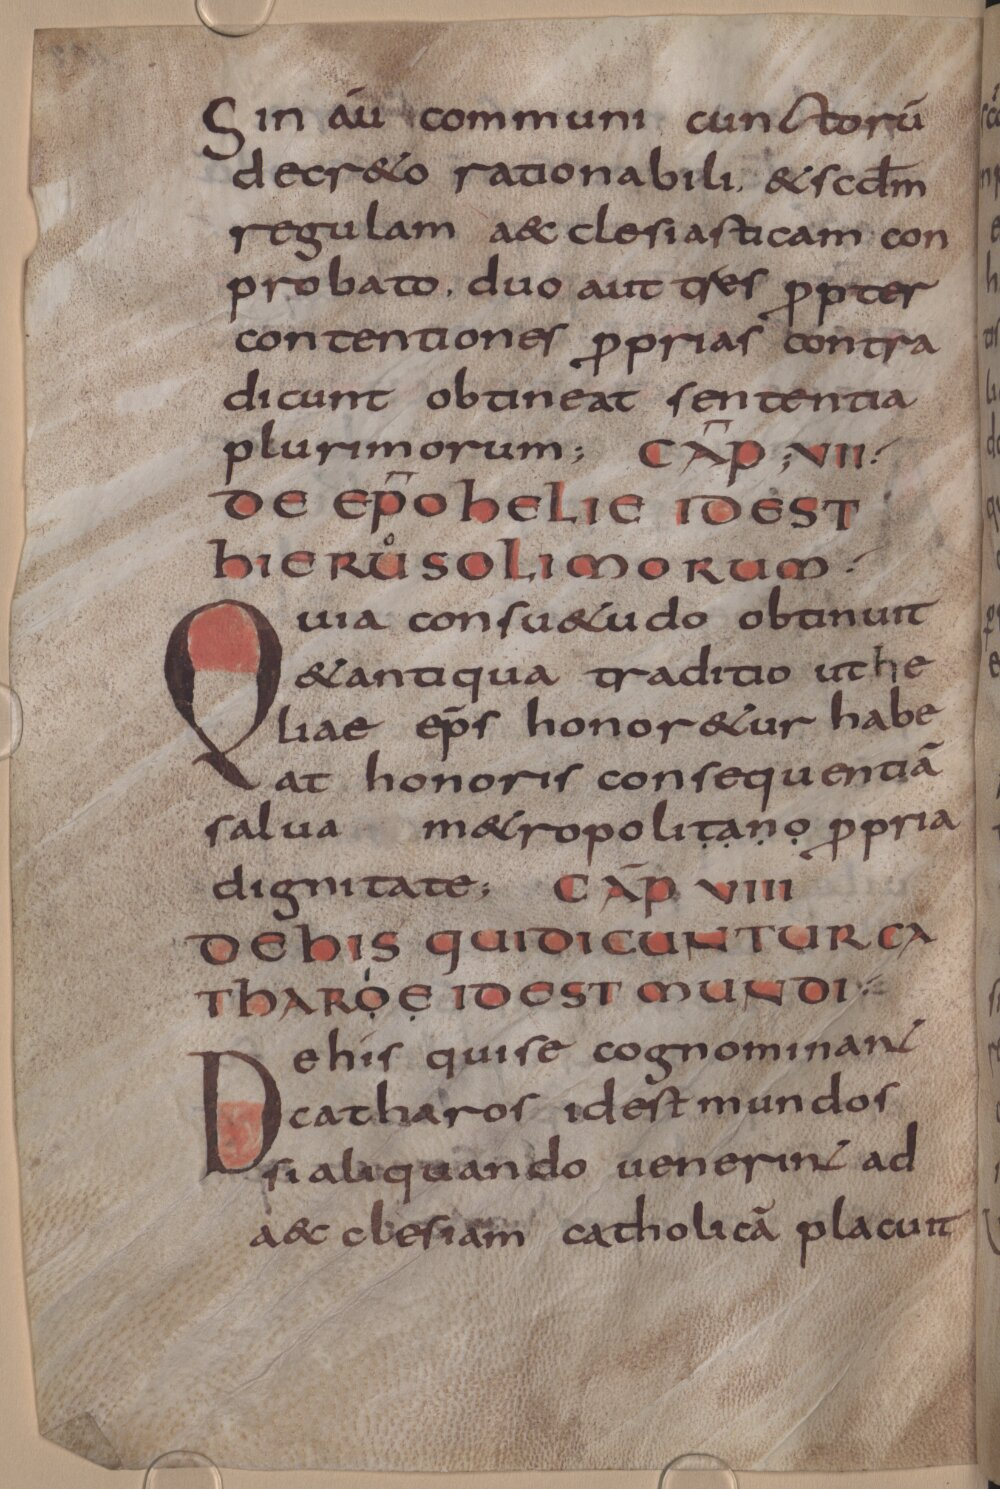 Sin aū communi cunctorū
decr&o rationabili. &scd̄m
regulam a&clesiasticam con
probato. duo aut tres ꝓpter
contentiones ꝓprias contra
dicunt obtineat sententia
plurimorum; CAP̄ ; VII
DE EP̄O HELIE IDEST
HIERUͦSOLIMORUM
Quia consu&udo obtinuit
&antiqua traditio ut he
liae ep̄s honor&ur habe
at honoris consequentiā
salua m&ropolitạṇọ ꝓpria
dignitate; CAP̄ VIII
DE HIS QUI DICUNTUR CA
THAROẸ IDEST MUNDI
De his qui se cognominant
catharos idest mundos
si aliquando uenerint ad
a&clesiam catholicā placuit